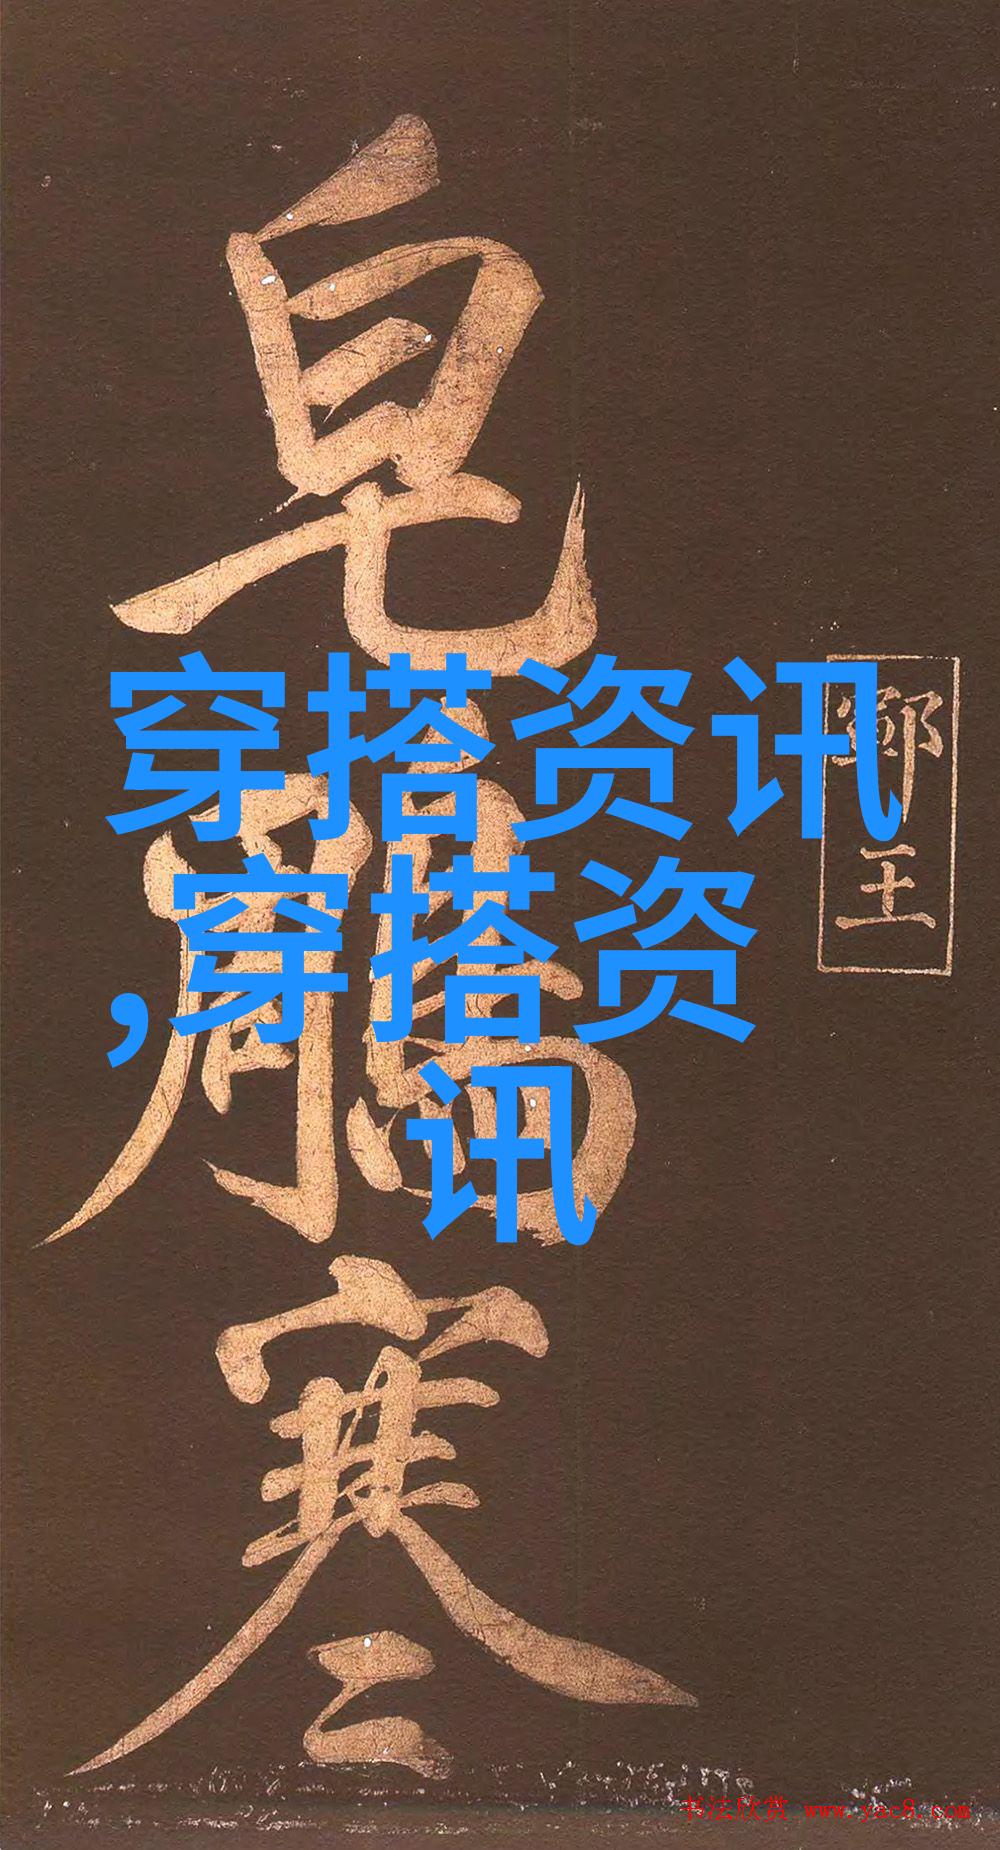 皂
鵰
寒
穿搭资讯
,穿搭资
讯
王
书法欣赏 www.yac8.com